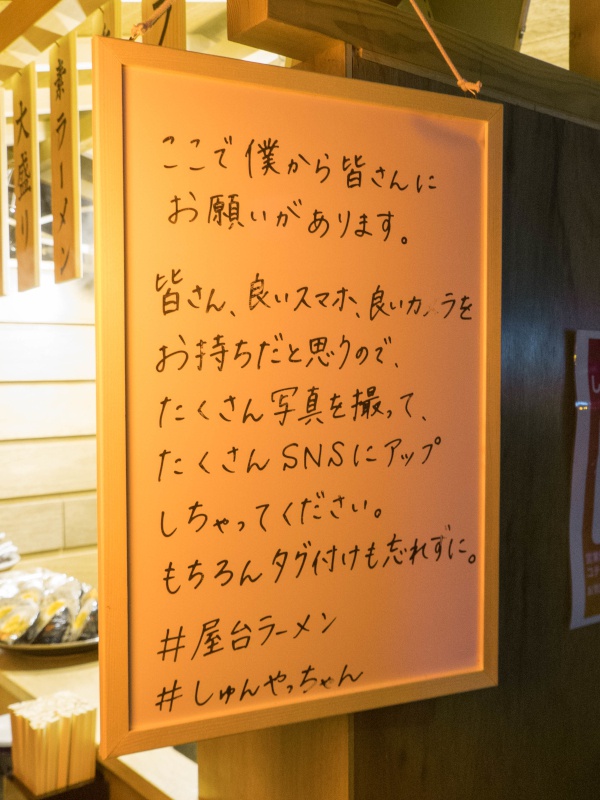 ここで僕から皆さんに
お願いがあります。
皆さん、良いスマホ、良いカメラを
お持ちだと思うので、
たくさん写真を撮って、
たくさんSNSにアップ
しちゃってください。
もちろんタグ付けも忘れずに。
#屋台ラーメン
#しゅんやっちゃん
素ラーメン
大盛り